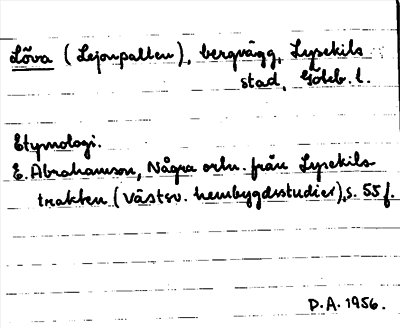 Lõva (Lejonpalten), bergvägg, Lysekils
stad, Göteb. l.
Etymologi.
E. Abrahamson, Några ortn. från Lysekils-
trakten (Västsv. hembygdsstudier), s. 55 f.
D.A. 1956.